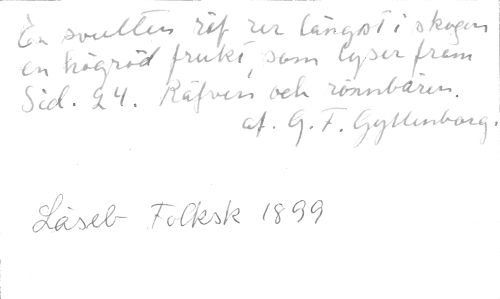 En svulten räf ser längst i skogen
en högröd frukt, som lyser fram
Sid. 24. Räfven och rönnbären.
af. G. F. Gyllenborg.
Läseb Folksk 1899